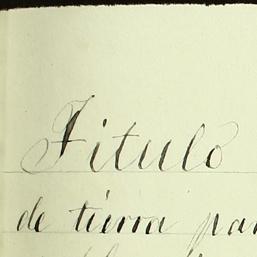 Titulo
de tierra par